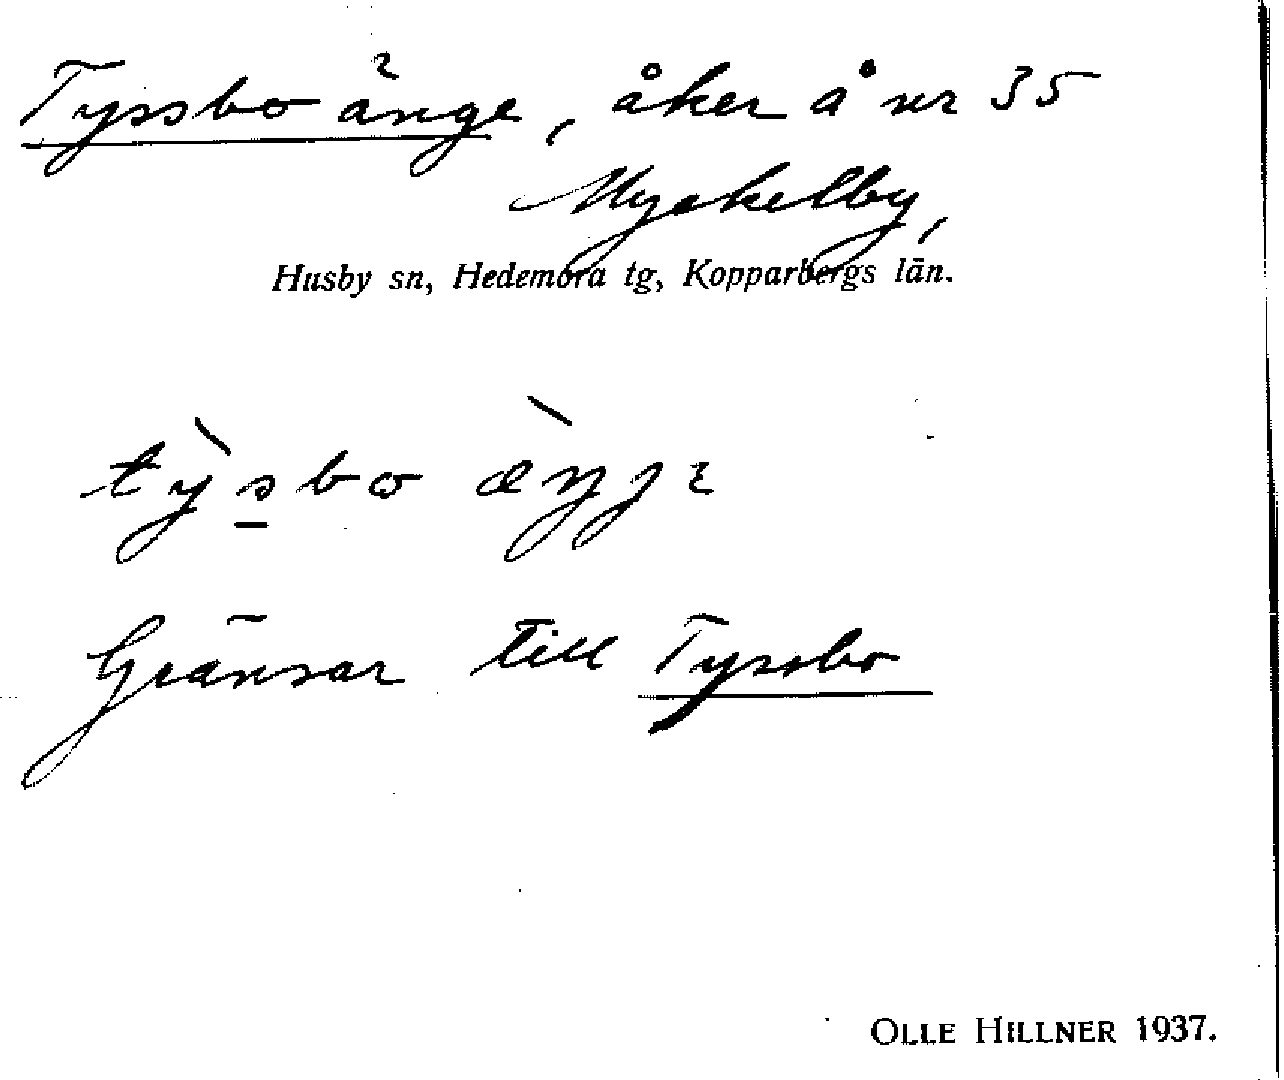 Tyssbo änge, åker å nr 35
Myckelby,
Husby sn, Hedemora tg, Kopparbergs län.
ty̆sbo
Gränsar till Tyssbo
OLLE HILLNER 1937.